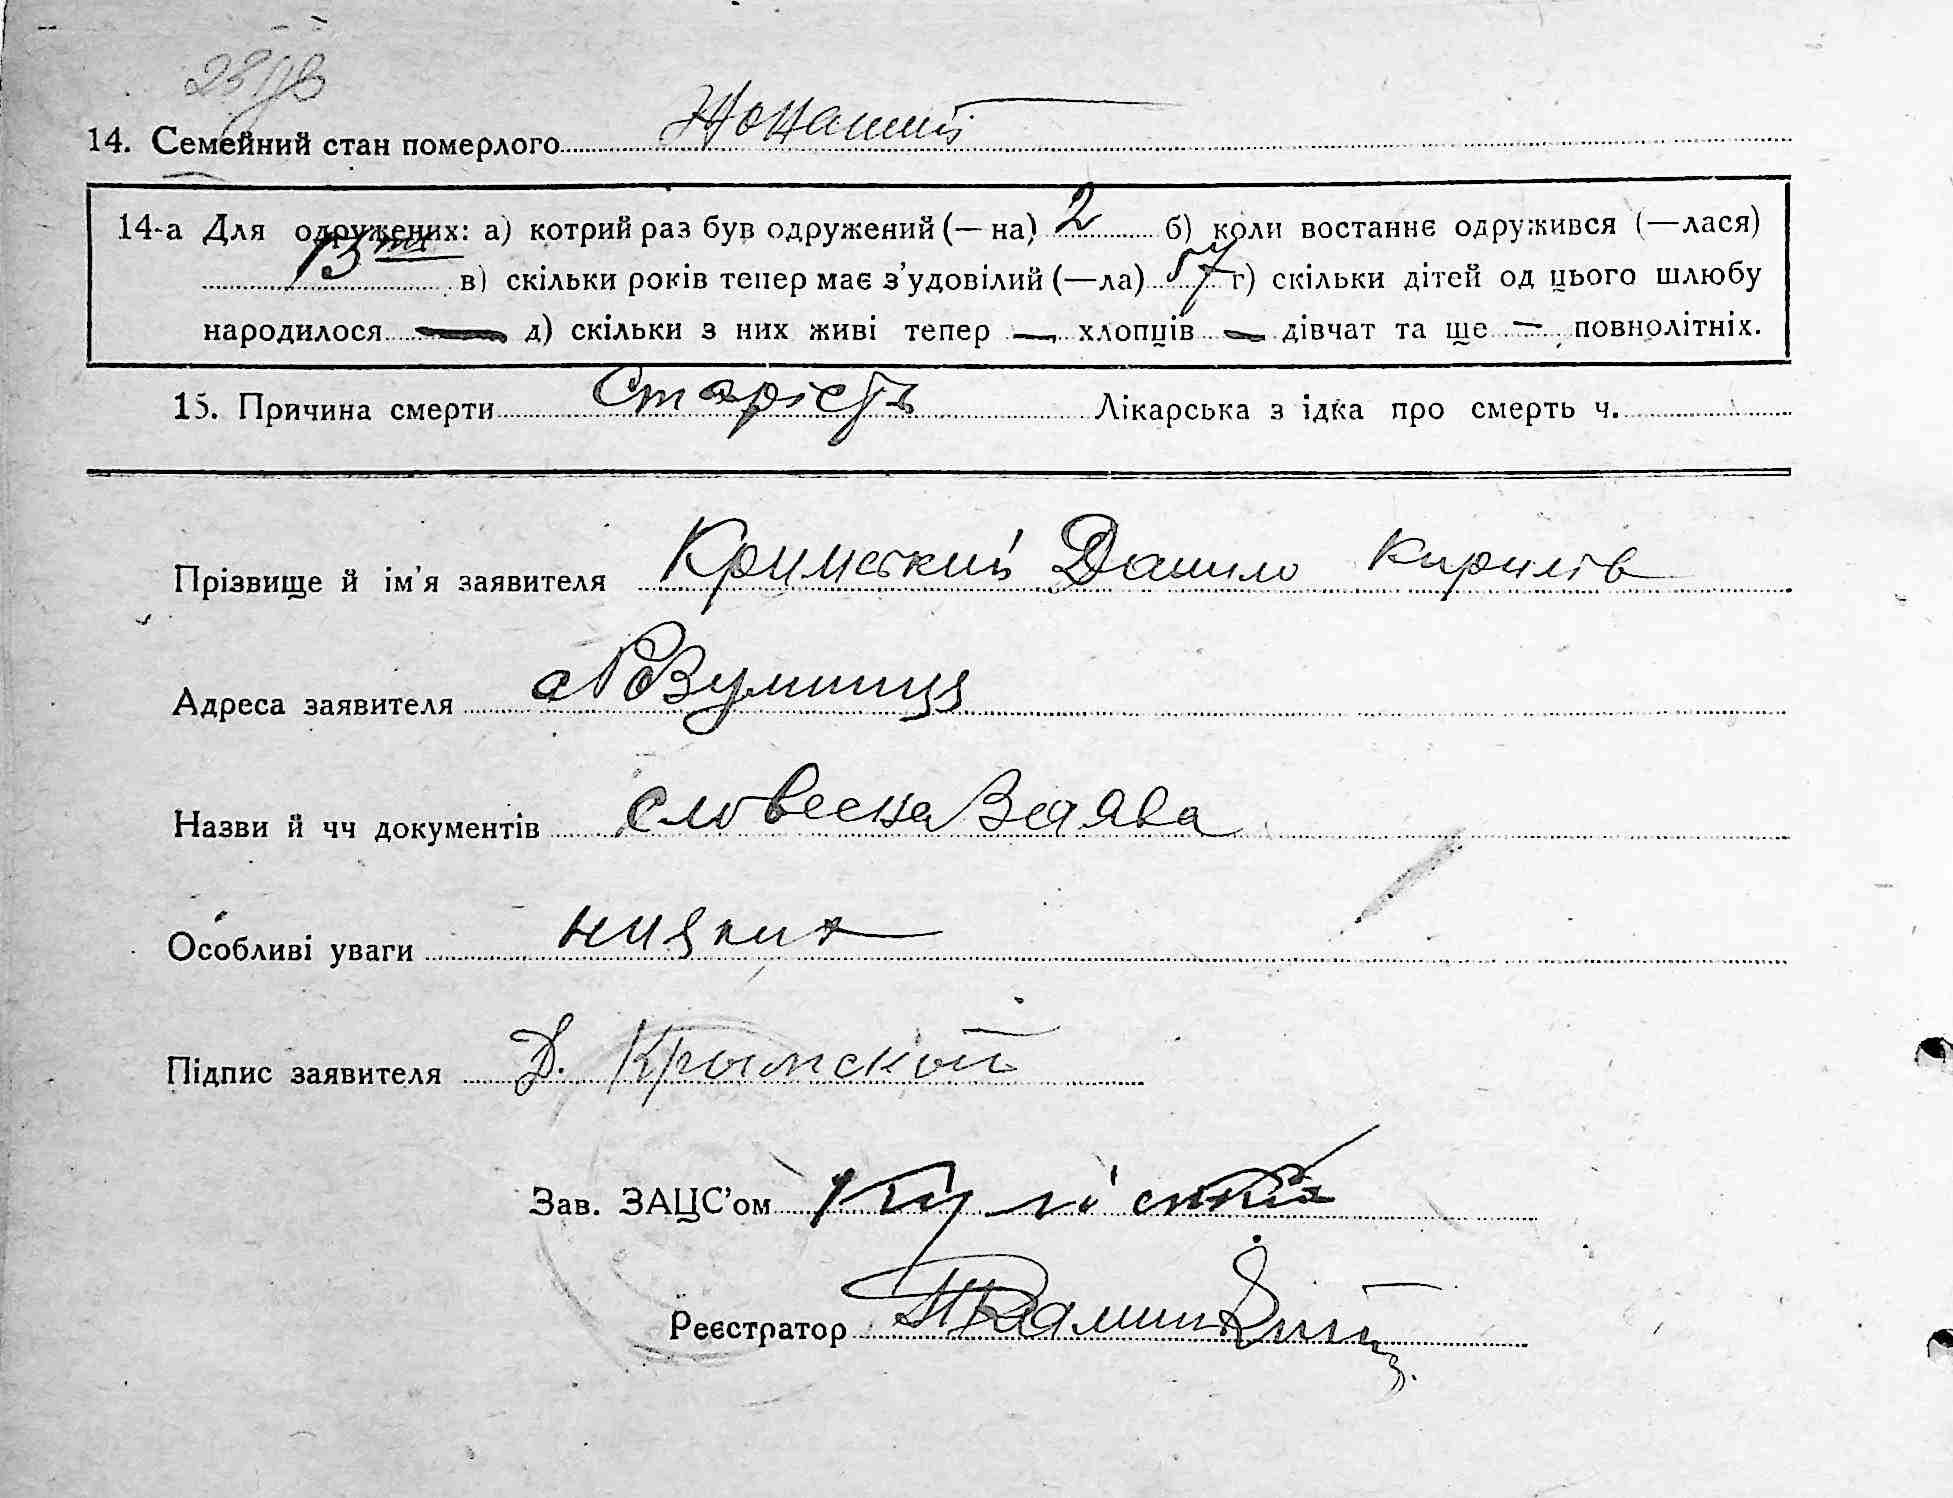 14. Семейний стан померлого Жонатий
14-а Для одружених: а) котрий раз був одружений (—на) 2 б) коли востаннє одружився (—лася)
13 в) скільки років тепер має з’удовілий (—ла) 57 г) скільки дітей од цього шлюбу
народилося — д) скільки з них живі тепер — хлопців — дівчат та ще — повнолітніх.
15. Причина смерти Старість Лікарська з ідка про смерть ч.
Прізвище й ім’я заявителя Кримський Данило Кирилів
Адреса заявителя
Назви й чч документів словесна заява
Особливі уваги нияких
Підпис заявителя Д. Крымской
Зав. ЗАЦС’ом
Реєстратор